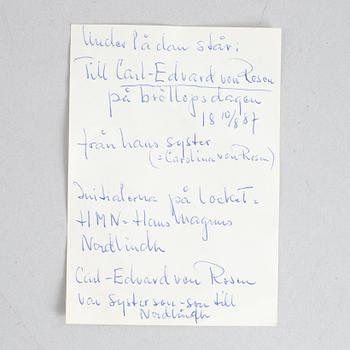 Under lådan står:
Till Carl-Edvard von Rosen
på bröllopsdagen
18 10/8 87
från hans syster
(= Carolina von Rosen)
Initialerna på locket =
HMN = Hans Magnus
Nordlindh
Carl-Edvard von Rosen
var systerson-son till
Nordlindh